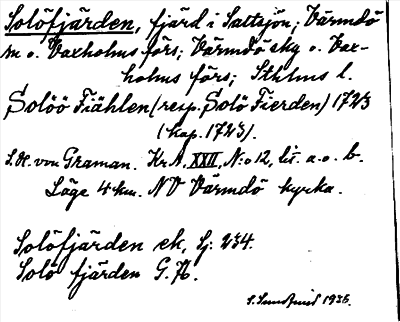 Solöfjärden, fjärd i Saltsjön; Värmdö
sn o. Vaxholms förs; Värmdö skg o. Vax-
holms förs; Sthlms l.
Solöö Fiählen (resp. Solö Fierden) 1723
(kop. 1723).
S. H. von Graman. Kr A. XXII, N:o 12, lit. a. o. b.
Läge 4 km. NV Värmdö kyrka.
Solöfjärden ek, Lj: 234.
Solö fjärden G. A.
S. Sundquist 1936.